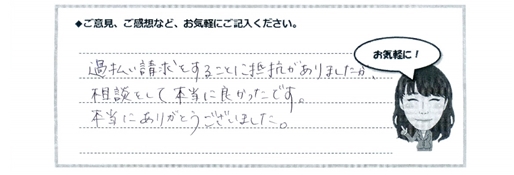 ◆ご意見、ご感想など、お気軽にご記入ください。
お気軽に！
過払い請求をすることに抵抗がありましたが、
相談をして本当に良かったです。
本当にありがとうございました。